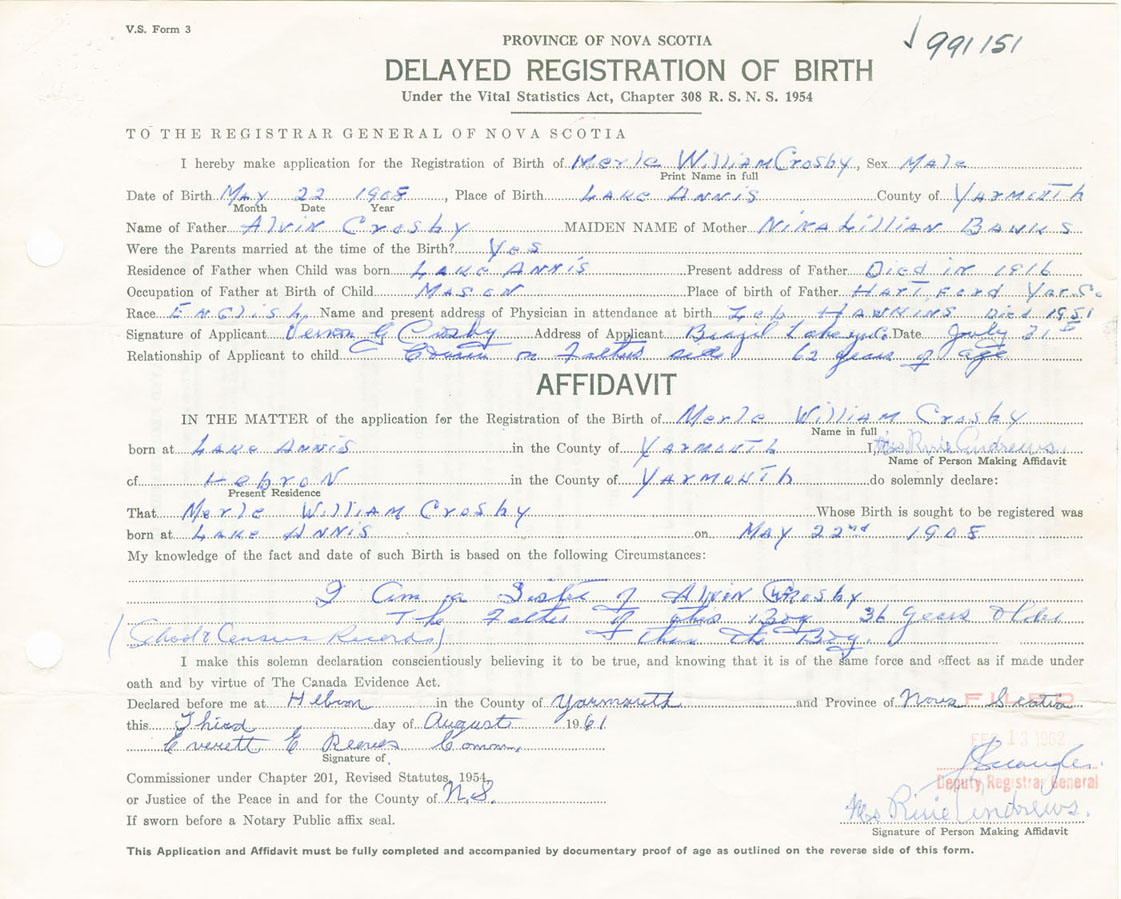 V.S. Form 3
991151
PROVINCE OF NOVA SCOTIA
DELAYED REGISTRATION OF BIRTH
Under the Vital Statistics Act, Chapter 308 R. S. N. S. 1954
TO THE REGISTRAR GENERAL OF NOVA SCOTIA
I hereby make application for the Registration of Birth of Merle William Crosby, Sex Male
Print Name in full
Date of Birth May 22 1908, Place of Birth Lake Annis County of Yarmouth
Month Date Year
Name of Father Alvin Crosby MAIDEN NAME of Mother Nina Lillian Banks
Were the Parents married at the time of the Birth? Yes
Residence of Father when Child was born Lake Annis Present address of Father Died in 1916
Occupation of Father at Birth of Child Mason Place of birth of Father Hartford Yar.
Race English Name and present address of Physician in attendance at birth Died 1951
Signature of Applicant Vernon G Crosby Address of Applicant Brazil Lake Date July 31
Relationship of Applicant to child Cousin on Father side 62 years of age
AFFIDAVIT
IN THE MATTER of the application for the Registration of the Birth of Merle William Crosby
Name in full
born at Lake Annis in the County of Yarmouth I, Mrs Andrews
Name of Person Making Affidavit
of Hebron in the County of Yarmouth do solemnly declare:
Present Residence
That Merle William Crosby Whose Birth is sought to be registered was
born at Lake Annis on May 22nd 1908
My knowledge of the fact and date of such Birth is based on the following Circumstances:
I am a Sister of Alvin Crosby
The Father of this Boy 36 years older
(School & Census Records) than the Boy.
I make this solemn declaration conscientiously believing it to be true, and knowing that it is of the same force and effect as if made under
oath and by virtue of The Canada Evidence Act.
Declared before me at Hebron in the County of Yarmouth and Province of Nova Scotia
FILED
this Third day of August 1961
FEB 13 1962
Everett E Reeves Comm.
Signature of
Commissioner under Chapter 201, Revised Statutes, 1954,
Deputy Registrar General
or Justice of the Peace in and for the County of N.S.
Mrs Andrews.
If sworn before a Notary Public affix seal.
Signature of Person Making Affidavit
This Application and Affidavit must be fully completed and accompanied by documentary proof of age as outlined on the reverse side of this form.